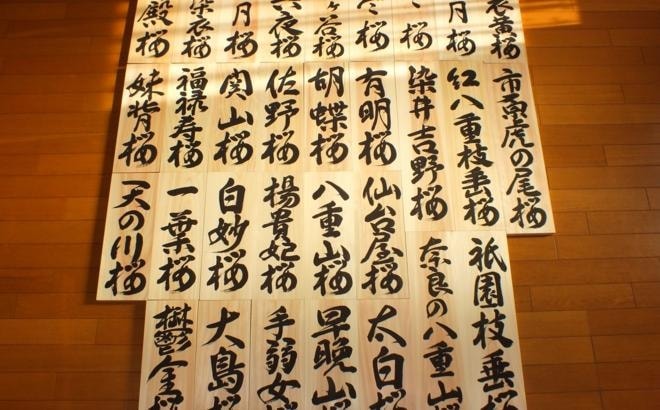 衣黄桜
月桜
桜
桜
ヶ谷桜
衣桜
月桜
染衣桜
殿桜
市原虎の尾桜
紅八重枝垂桜
染井吉野桜
有明桜
胡蝶桜
佐野桜
関山桜
福禄寿桜
妹背桜
祇園枝垂桜
奈良の八重山
仙台屋桜
八重山桜
楊貴妃桜
白妙桜
一葉桜
天の川桜
太白桜
早晩山
手弱女桜
大島桜
鬱金桜